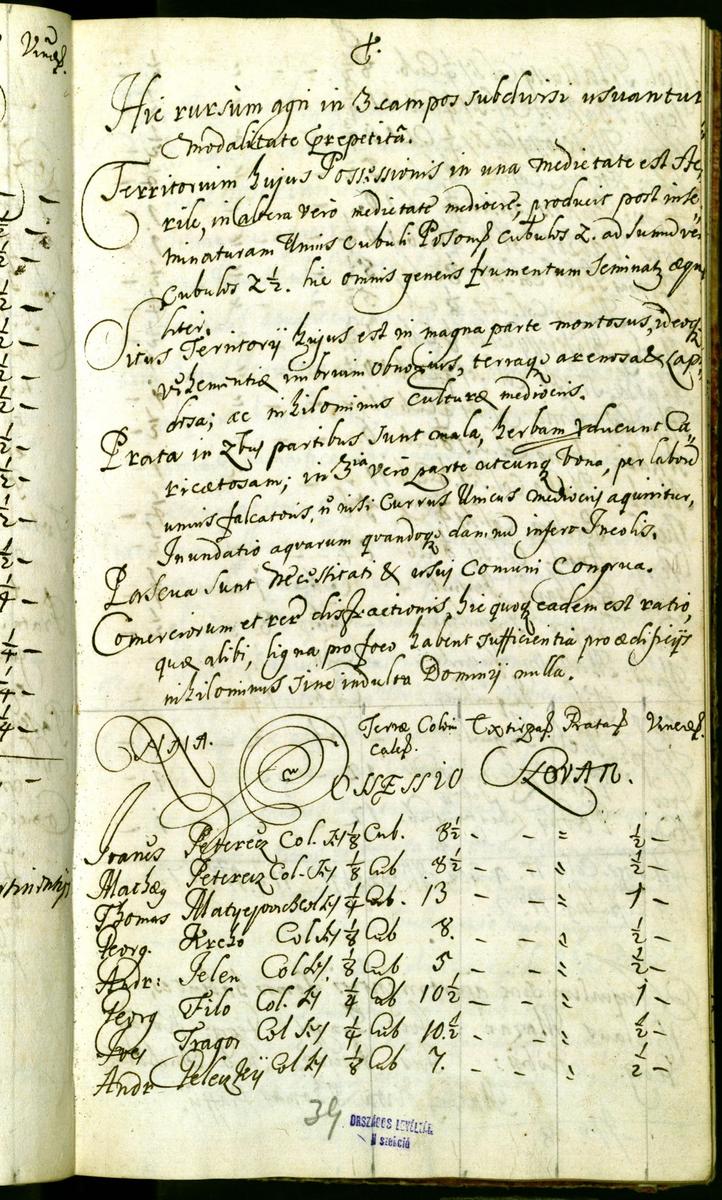 Vineæ.
Hic rursum agri in 3 campos subdivisi usuantur
modalitate prepetitâ.
Territorium hujus Possessionis in una medietate est ste-
rile, in altera vero medietate mediocre, producit post inse-
minaturam Unius Cubuli Poson Cubulos 2. ad summū ve-
Cubulos 2 1/2. hic omnis generis frumentum Seminat æqua-
liter.
Situs Territorij hujus est in magna parte montosus,
vehementiæ imbrium obnoxius, terraq arenosa & Lapi-
dosa; ac nihilominus Culturæ mediocris.
Prata in 2bus partibus sunt mala, herbam producunt Ca-
ricætosam; in 3ia vero parte utcunq bona, per laborē
unius falcatoris, nō nisi Currus Unicus mediocris aquiritur,
Inundatio aquarum quandoq damnū infert Incolis.
Pascua sunt Necessitati & usui Comuni Congrua.
Comerciorum et rerū distractionis, hic quoq eadem est ratio,
quæ alibi, ligna pro foco habent sufficientia pro ædificijs
nihilominus sine indultu Dominij nulla.
Terræ Coloni Extirpat. Prata Vineæ
cales.
POSSESSIO SLOVAN.
Ioanes Peterecz Col. 1/8 Cub. 8 1/2 - - = 1/2 -
Mathæy Peterecz Col. 1/8 Cub 8 1/2 - - = 1/2 -
Thomas 1/4 Cub. 13 - - = 1 -
Georg. Krcho Col 1/8 Cub 8. - - = 1/2 -
Andr: Jelen Col 1/8 Cub 5 - - = 1/2 -
Georg Filo Col. 1/4 Cub 10 1/2 - - = 1 -
Tragor Col 1/4 Cub 10. 1/2 - - = 1/2 -
Andr Col 1/8 Cub 7. - - = 1/2 -
39
ORSZÁGOS LEVÉLTÁR
N szekció